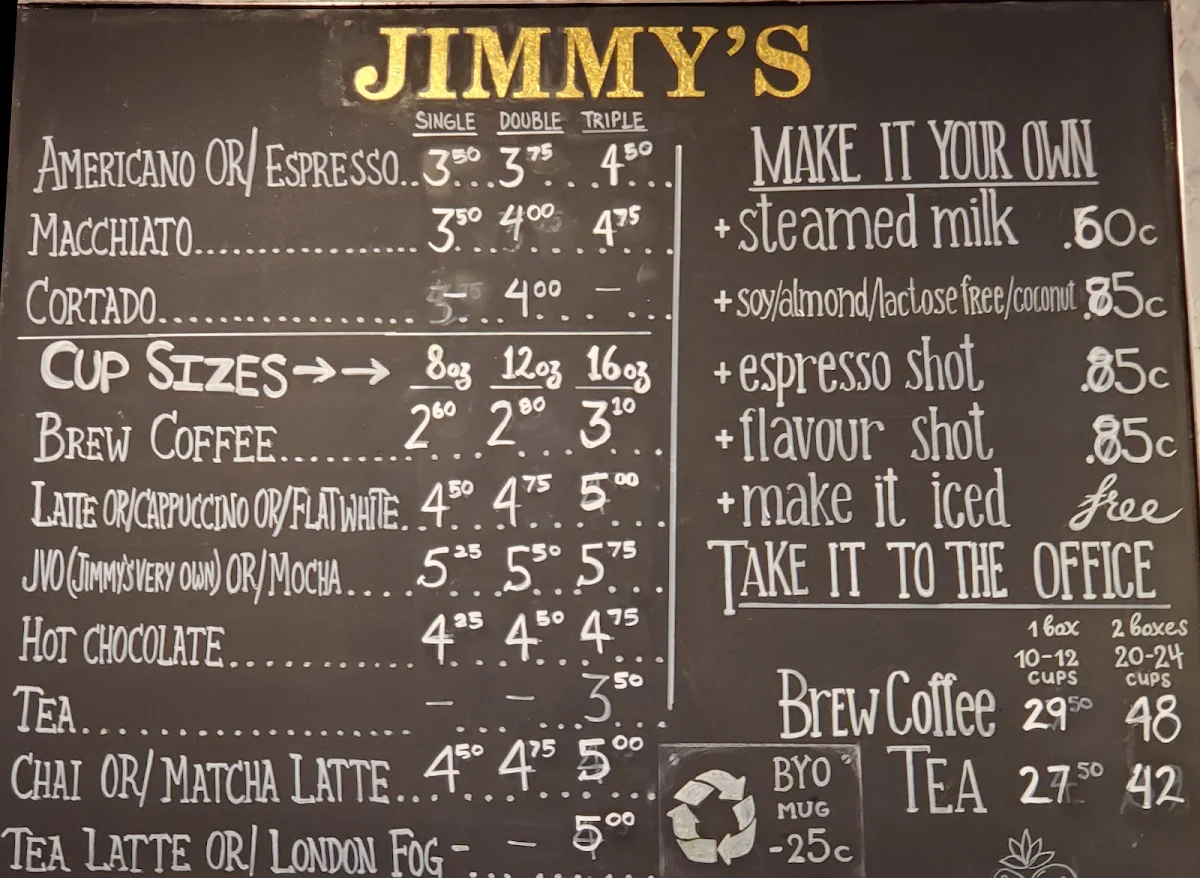 JIMMY'S
SINGLE DOUBLE TRIPLE
AMERICANO OR/ ESPRESSO..3⁵⁰...3⁷⁵...4⁵⁰...
MACCHIATO................3⁵⁰ 4⁰⁰ 4⁷⁵
CORTADO................. - 4⁰⁰ -
CUP SIZES→→ 8oz 12oz 16oz
BREW COFFEE........2⁶⁰ 2⁸⁰ 3¹⁰
LATTE OR/CAPPUCCINO OR/FLAT WHITE.4⁵⁰ 4⁷⁵ 5⁰⁰
JVO (JIMMY'S VERY OWN) OR/MOCHA....5²⁵ 5⁵⁰ 5⁷⁵
HOT CHOCOLATE............4²⁵ 4⁵⁰ 4⁷⁵
TEA..................... - - 3⁵⁰
CHAI OR/ MATCHA LATTE...4⁵⁰ 4⁷⁵ 5⁰⁰
TEA LATTE OR/ LONDON FOG - - 5⁰⁰
MAKE IT YOUR OWN
+steamed milk .60c
+soy/almond/lactose free/coconut .85c
+espresso shot .85c
+flavour shot .85c
+make it iced free
TAKE IT TO THE OFFICE
1 box 2 boxes
10-12 20-24
CUPS CUPS
Brew Coffee 29⁵⁰ 48
TEA 27⁵⁰ 42
BYO
MUG
-25c